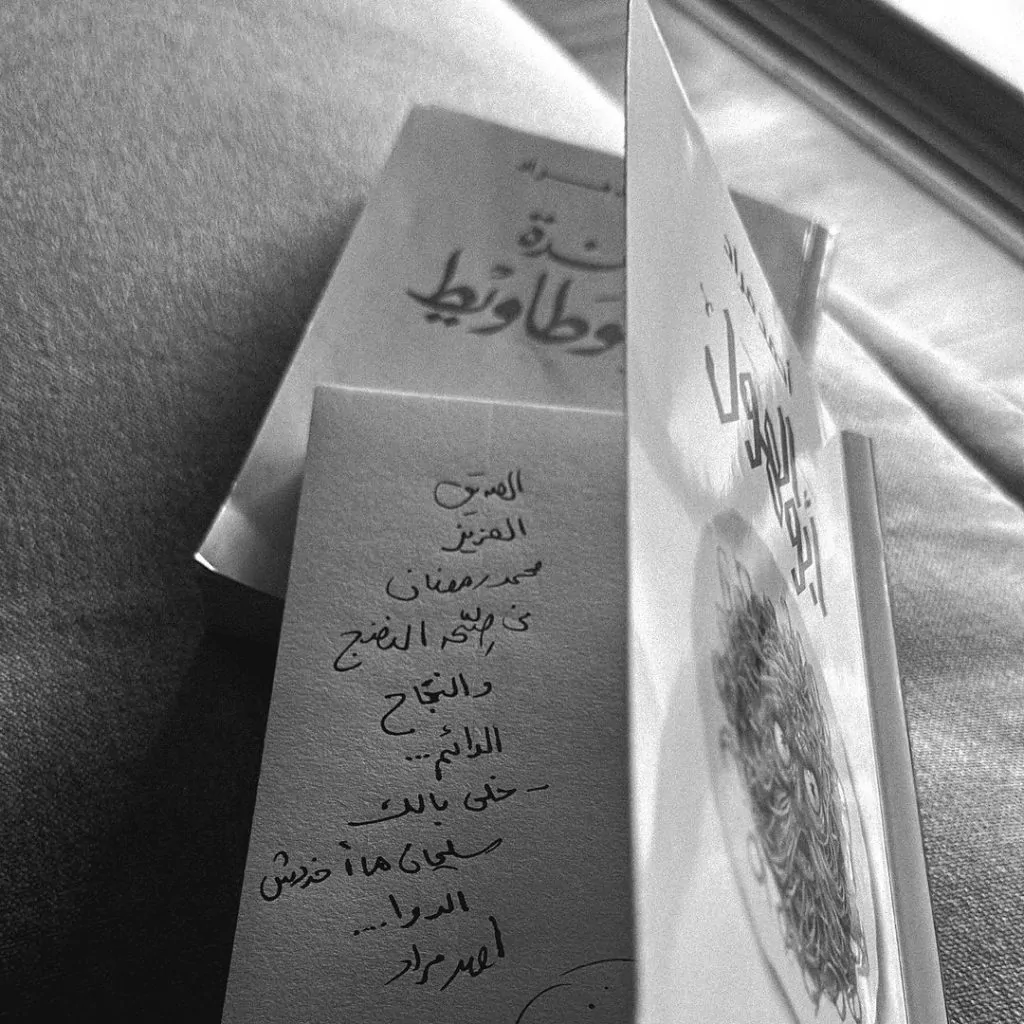 مراد
ندة
وطاويط
أبو الهول
الصديق
العزيز
محمد رمضان
في صحة النضج
والنجاح
الدائم...
- خلى بالك
سليمان ما أخدش
الدوا...
أحمد مراد